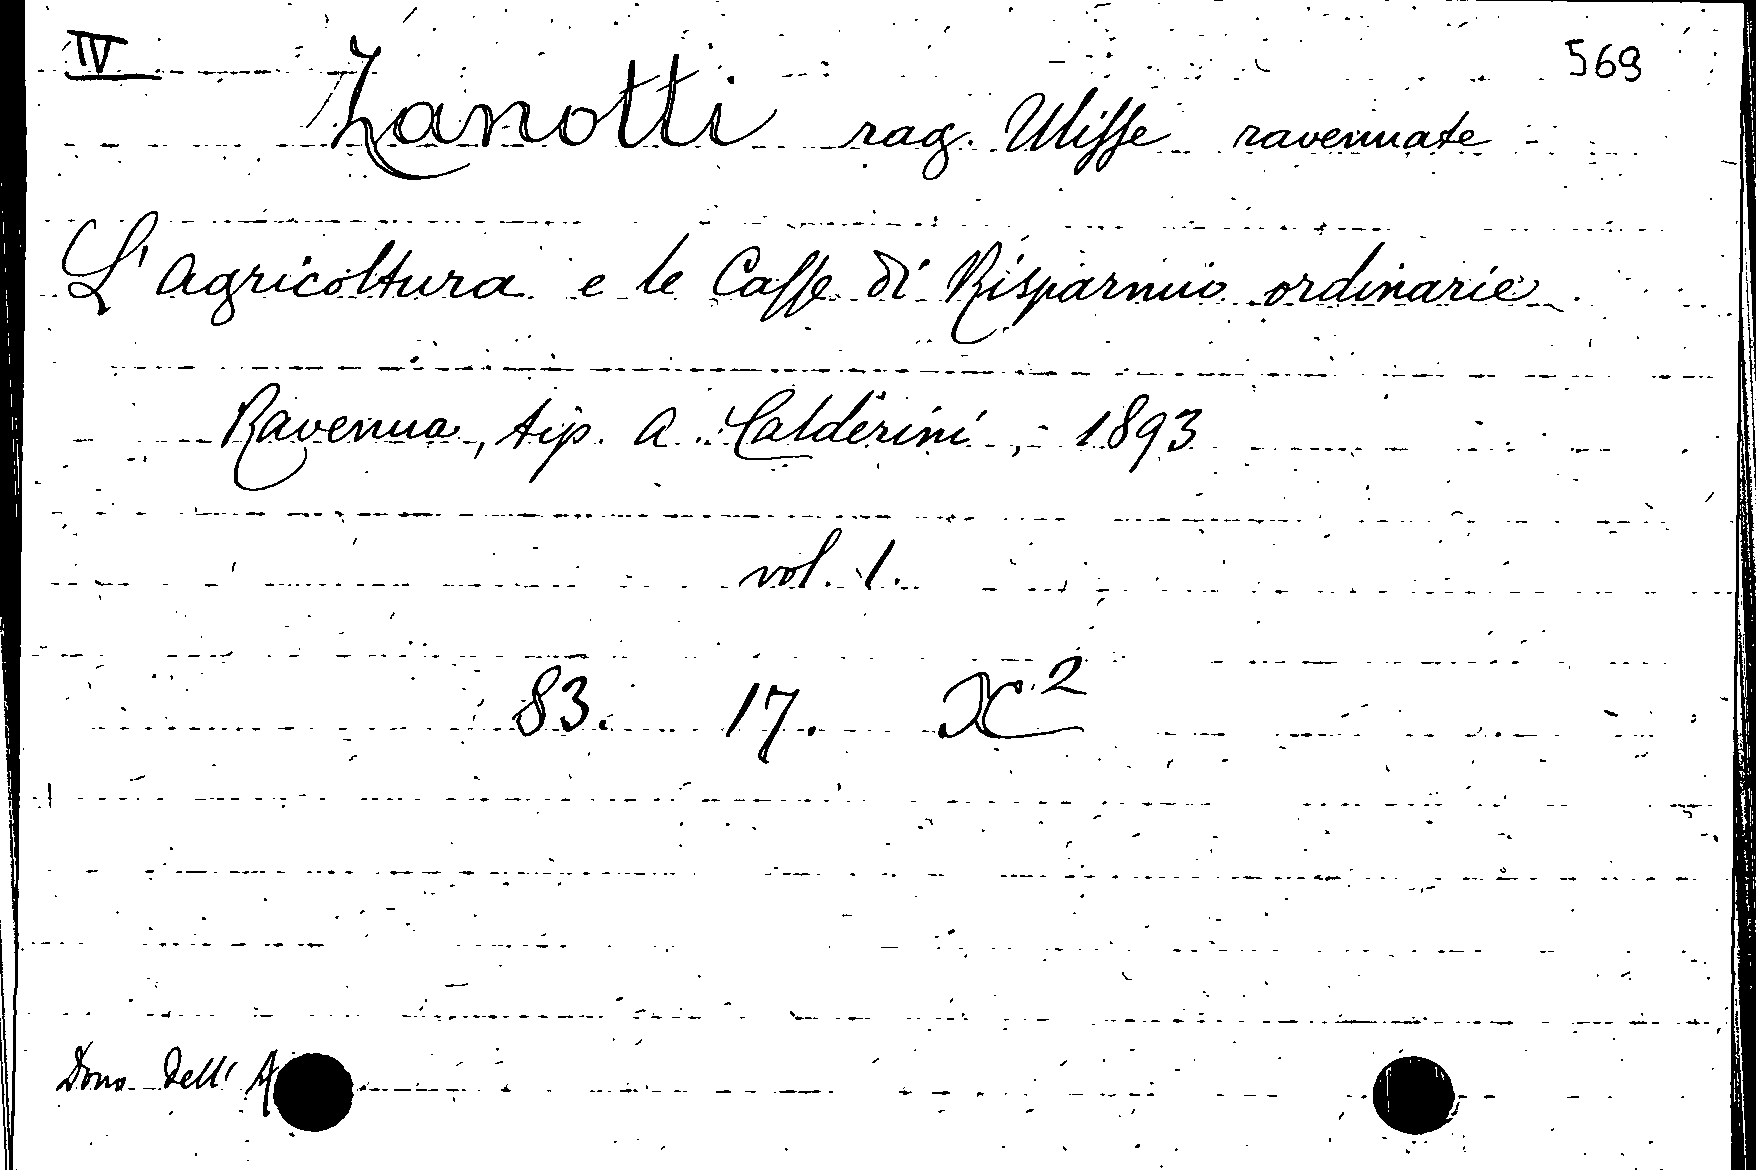 IV 569
Zanotti rag. Ulisse ravennate
L'Agricoltura e le Casse di Risparmio ordinarie
Ravenna, tip. A. Calderini, 1893
vol. 1.
83. 17. X 2
Dono dell' A